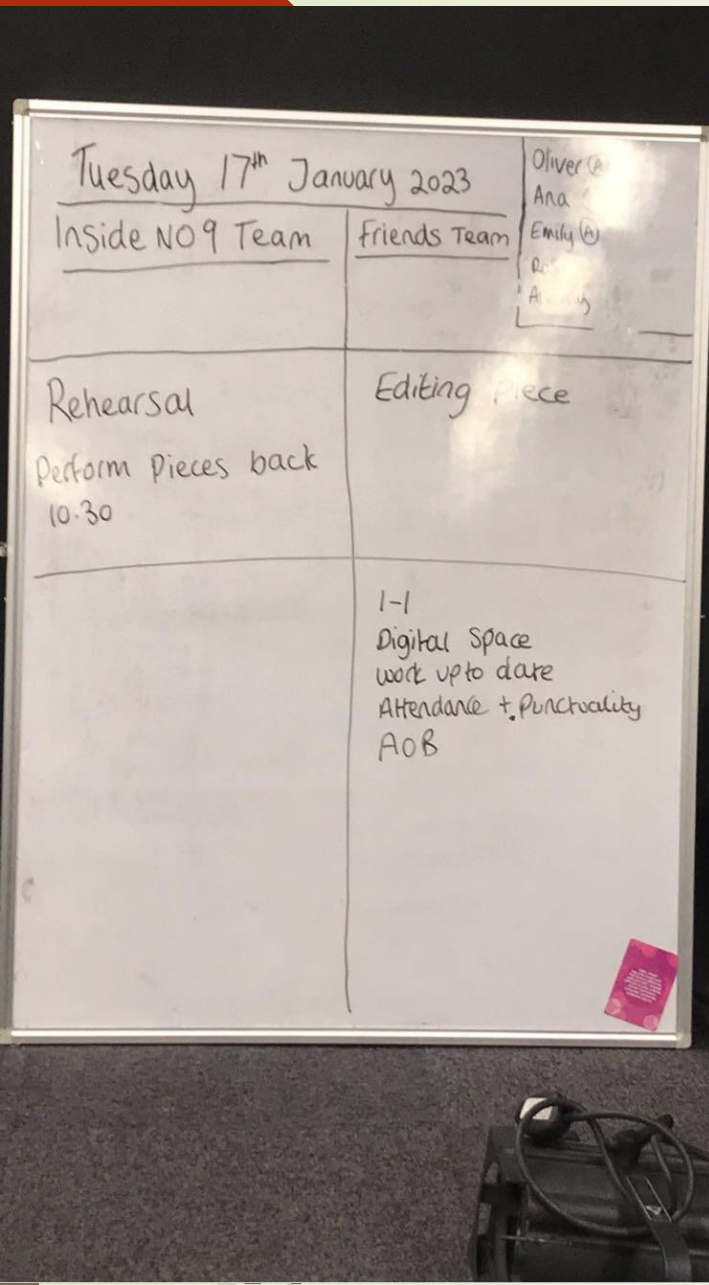 Tuesday 17th January 2023
Oliver (A)
Ana
Emily (A)
Inside NO9 Team
Friends Team
Rehearsal
Perform Pieces back
10.30
Editing
1-1
Digital Space
work up to date
Attendance + Punctuality
AOB